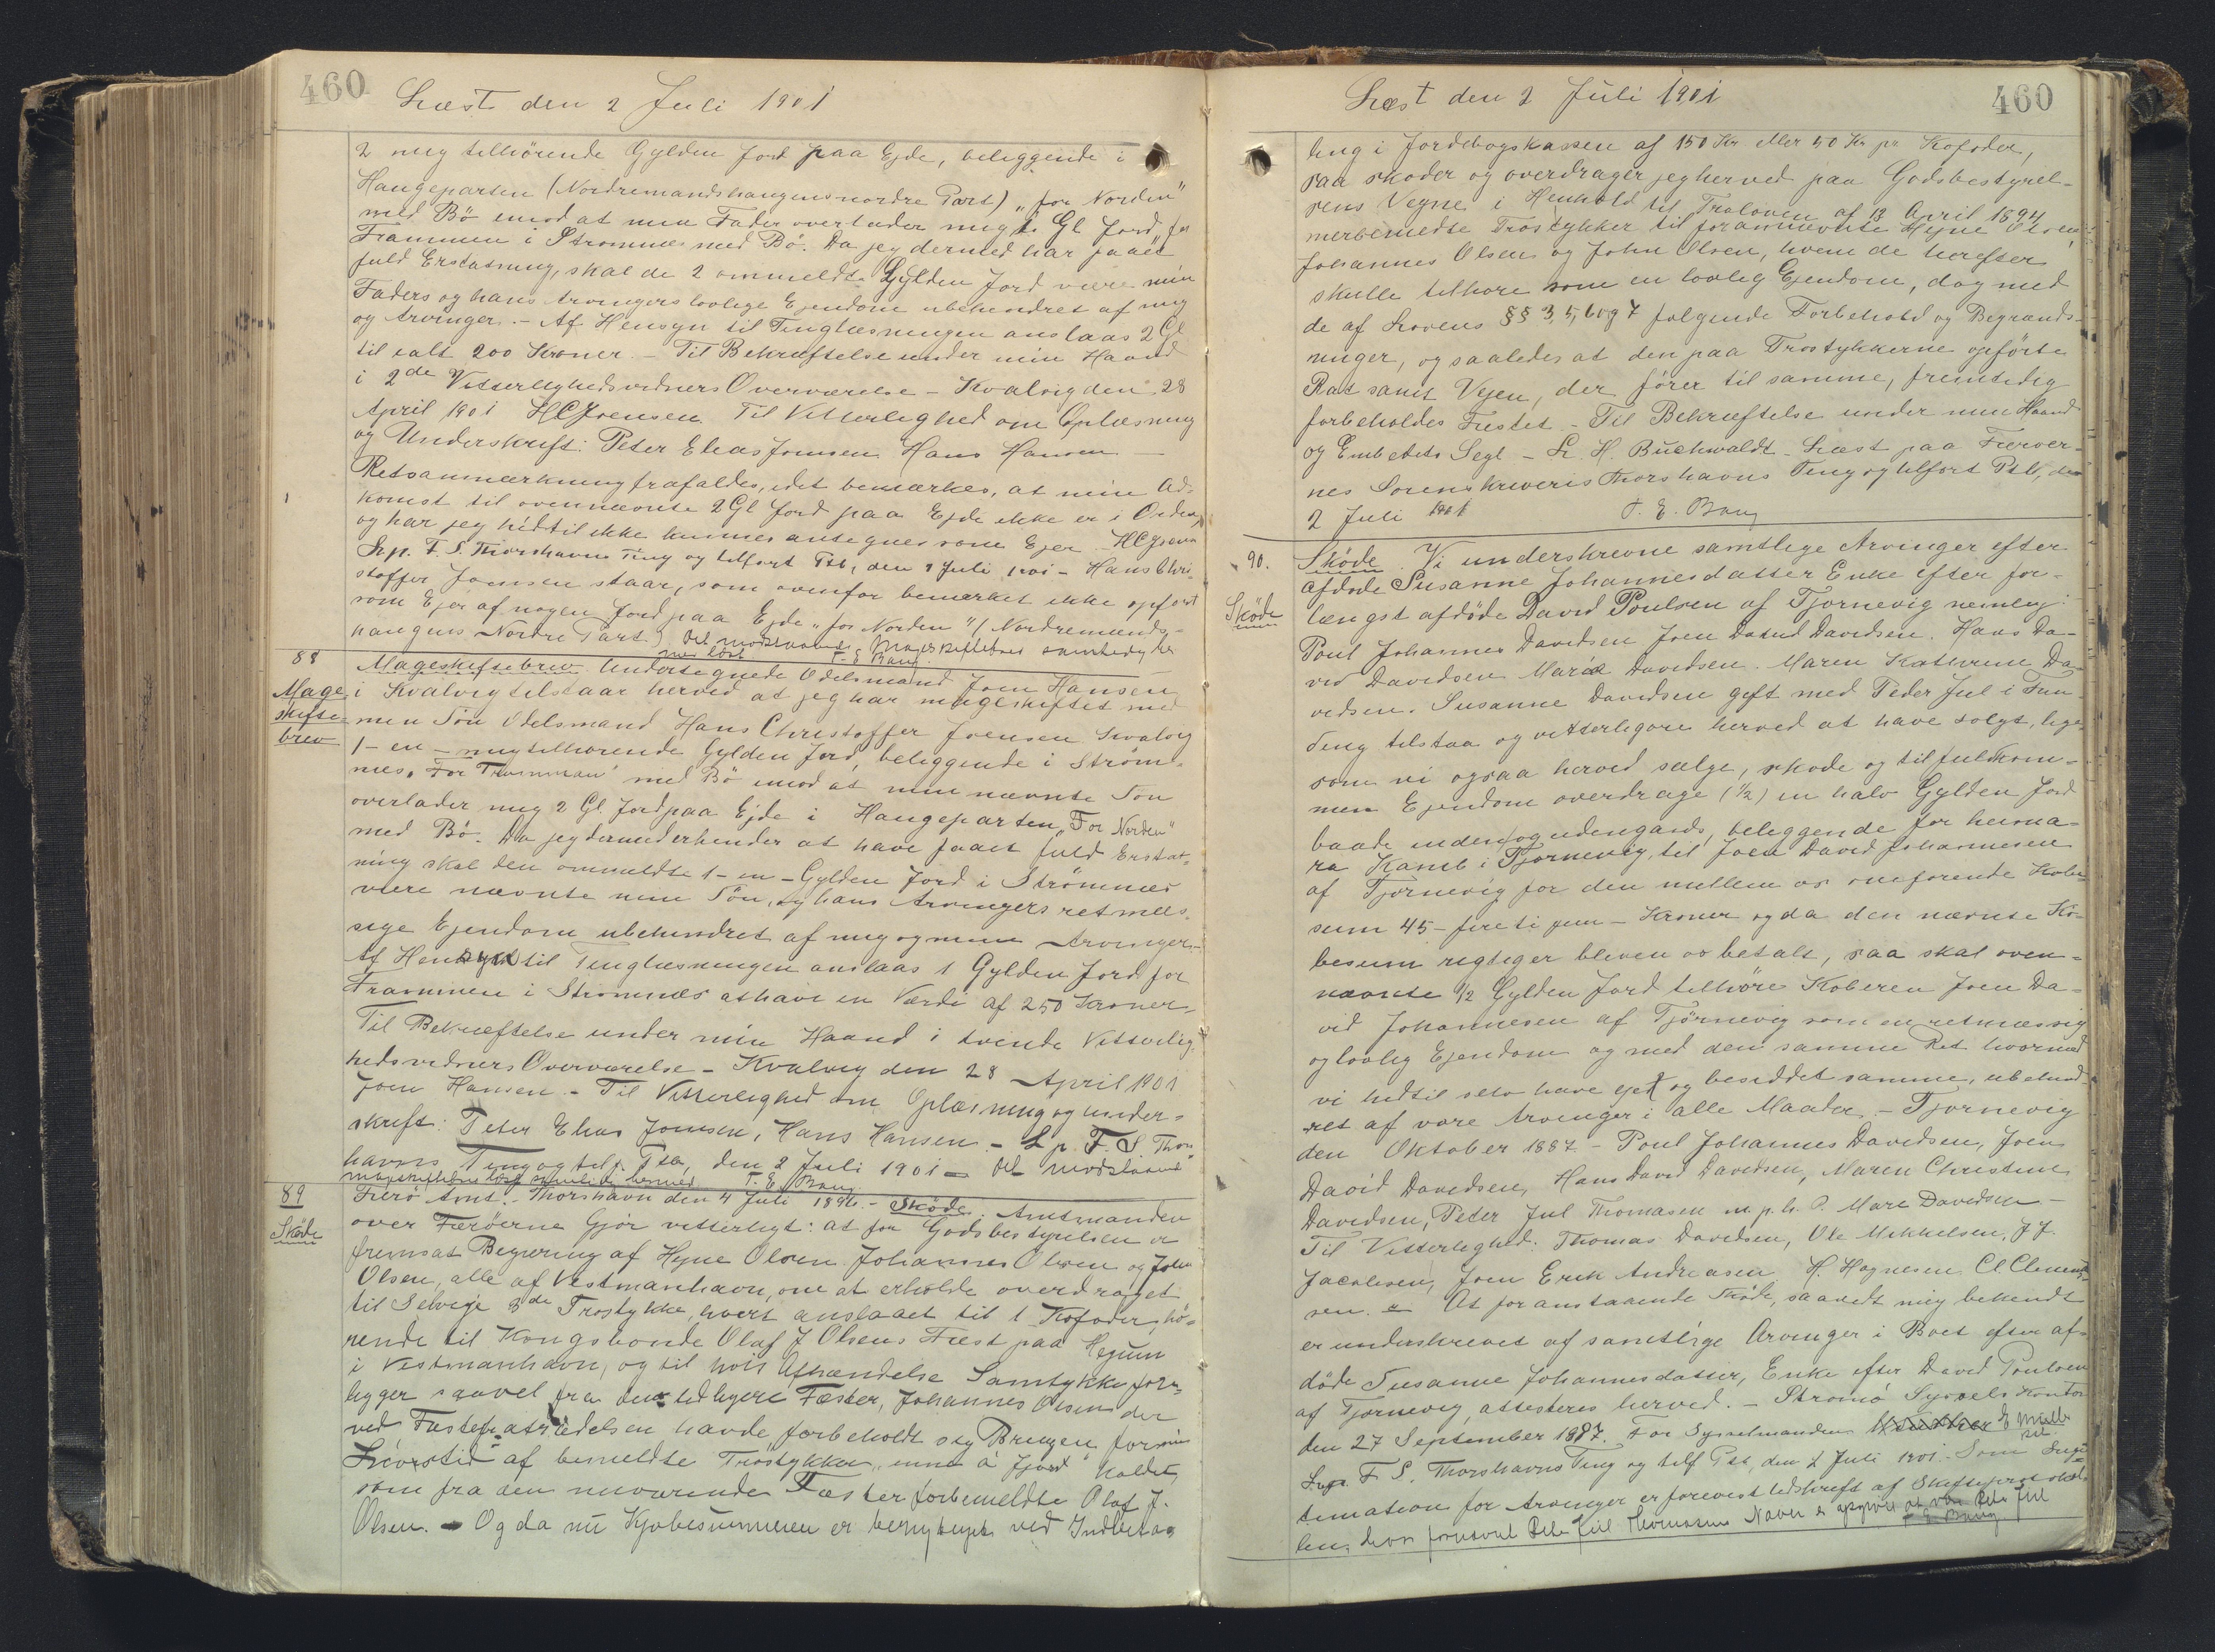 460
Læst den 2 Juli 1901
2 mig tilhörende Gylden Jord paa Ejde, beliggende i
Haugeparten (Nordremandshaugens nordre Part) "for Norden"
med Bö imod at min Fader overlader mig 1 Gl Jord, for
Frammen i Strømnes med Bö. Da jeg dermed har faaet
fuld Erstatning, skal de 2 ommeldte Gylden Jord være min
Faders og hans Arvingers lovlige Ejendom ubehindret af mig
og Arvinger. - Af Hensyn til Tinglæsningen anslaas 2 Gl
til ialt 200 Kroner. - Til Bekræftelse under min Haand
i 2de Vitterlighedsvidners Overværelse - Kvalvig den 28
April 1901 HCJoensen Til Vitterlighed om Oplæsning
og Underskrift: Peter Elias Joensen Hans Hansen
Retsanmærkning frafaldes, idet bemærkes, at min Ad-
komst til ovennævnte 2 Gl Jord paa Ejde ikke er i Orden,
og har jeg hidtil ikke kunnet antegnes som Ejer HCJoensen
Lp. F. S. Thorshavns Ting og tilfört Ptb, den 2 Juli 1901 - Hans Chri-
stoffer Joensen staar, som ovenfor bemærket ikke opfört
som Ejer af nogen Jord paa Ejde "for Norden" (Nordremands-
haugens Nordre Part) Det modstaaende Mageskiftebrev samtidig her
med læst T. E. Bang
88
Mage
skifte
brev
Mageskiftebrev. Undertegnede Odelsmand Joen Hansen
i Kvalvig tilstaar herved at jeg har mageskiftet med
min Sön Odelsmand Hans Christoffer Joensen Kvalvig
1 - en - mig tilhörende Gylden Jord, beliggende i Ström-
nes, "For Frammen" med Bö imod at min nævnte Sön
overlader mig 2 Gl. Jord paa Ejde i Haugeparten "For Norden"
med Bö. Da jeg dermed erkender at have faaet fuld Erstat-
ning skal den ommeldte 1 - en - Gylden Jord i Strömnes
være nævnte min Sön, og hans Arvingers retmæs-
sige Ejendom ubehindret af mig og mine Arvinger. -
Af Hensyn til Tinglæsningen anslaas 1 Gylden Jord for
Frammen i Strömnæs at have en Værdi af 250 Kroner.
Til Bekræftelse under min Haand i tvende Vitterlig-
hedsvidners Overværelse - Kvalvig den 28 April 1901
Joen Hansen. - Til Vitterlighed om Oplæsning og under-
skrift: Peter Elias Joensen, Hans Hansen. - Lp. F. S. Thors
havns Ting og tilf. Ptb, den 2 Juli 1901 - Det modstaaende
mageskiftebrev læst samtidig hermed. T. E. Bang
89
Sköde
Færö Amt. Thorshavn den 4 Juli 1896. - Sköde. Amtmanden
over Færöerne Gjör vitterligt: at for Godsbestyrelsen er
fremsat Begjering af Hejne Olsen Johannes Olsen og John
Olsen, alle af Vestmanhavn, om at erholde overdraget
til Selveje 3de Trostykke, hvert anslaaet til 1 Kofoder, hö-
rende til Kongsbonde Olaf J Olsens Fæst paa Hegum
i Vestmanhavn, og til hvis Afhændelse Samtykke fore-
ligger saavel fra den tidligere Fæster, Johannes Olsen der
ved Fæstefratrædelsen havde forbeholdt sig Brugen for sin
Livstid af bemeldte Tröstykker, "inna á Fjørd" kaldet,
som fra den nuværende Fæster forbemeldte Olaf J.
Olsen. - Og da nu Kjøbesummen er berigtiget ved Indbeta-
Læst den 2 Juli 1901
460
ling i Jordebogskassen af 150 Kr eller 50 Kr pr Kofoder,
saa skøder og overdrager jeg herved paa Godsbestyrel-
sens Vegne i Henhold til Troloven af 13 April 1894
merbemeldte Trostykker til forannævnte Hejne Olsen,
Johannes Olsen og John Olsen, hvem de herefter
skulle tilhøre som en lovlig Ejendom, dog med
de af Lovens §§ 3, 5, 6 og 7 følgende Forbehold og Begrænds-
ninger, og saaledes at den paa Trostykkerne opførte
Rat samt Vejen, der fører til samme, fremtidig
forbeholdes Fæstet. - Til Bekræftelse under min Haand
og Embedets Segl - L. H. Buchwaldt. Læst paa Færøer-
nes Sorenskriveris Thorshavns Ting og tilført Ptb, den
2 Juli 1901 T. E. Bang
90.
Sköde
Sköde. Vi underskrevne samtlige Arvinger efter
afdøde Susanne Johannesdatter Enke efter for-
længst afdöde David Poulsen af Tjornevig nemlig:
Poul Johannes Davidsen Joen David Davidsen. Hans Da-
vid Davidsen Maria Davidsen. Maren Kathrine Da-
vidsen. Susanne Davidsen gift med Peder Jul i Fun-
ding tilstaa og vitterligøre herved at have solgt, lige-
som vi ogsaa herved sælge, skøde og til fuldkom-
men Ejendom overdrage (1/2) en halv Gylden Jord
baade inden og udengards, beliggende for heima-
ra Kamb i Tjørnevig, til Joen David Johannesen
af Tjørnevig for den mellem os omforende Købe-
sum 45 - fireti fem - Kroner og da den nævnte Kö-
besum rigtiger bleven os betalt, saa skal oven-
nævnte 1/2 Gylden Jord tilhöre Köberen Joen Da-
vid Johannesen af Tjørnevig som en retmæssig
og lovlig Ejendom og med den samme Ret hvormed
vi hidtil selv have ejet og besiddet samme, ubehind-
ret af vore Arvinger i alle Maader. - Tjornevig
den Oktober 1887 - Poul Johannes Davidsen, Joen
David Davidsen, Hans David Davidsen, Maren Christine
Davidsen, Peder Jul Thomasen m. p. h. P. Mare Davidsen -
Til Vitterlighed: Thomas Davidsen, Ole Mikkelsen, J J.
Jacobsen, Joen Erik Andreasen H. Hognesen Cl Clement-
sen. At foranstaaende Sköde, saavidt mig bekendt
er underskrevet af samtlige Arvinger i Boet efter af-
döde Susanne Johannesdatter, Enke efter David Poulsen
af Tjørnevig, attesteres herved. - Strømö Syssels Kontor
den 27 September 1887. For Sysselmanden E Müller
Lp. F. S. Thorshavns Ting og tilf Ptb, den 2 Juli 1901. Som Legi-
timation for Arvinger er forevist Udskrift af Skifteprotokol-
len,
T E Bang